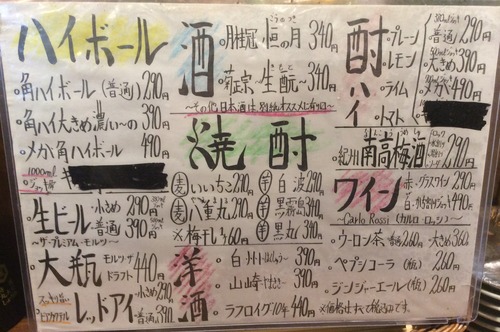 ハイボール
・角ハイボール(普通)290円
・角ハイ大きめ濃い〜の390円
・メガ角ハイボール490円
1000ml
・生ビール 小さめ290円
普通390円
〜ザ・プレミアム・モルツ〜
・大瓶 モルツ
ドラフト440円
・レッドアイ 小さめ290円
普通390円
酒
・月桂冠 垣の月340円
・菊正宗 生酛〜340円
〜その他日本酒は別紙オススメに有り〼〜
焼酎
麦いいちこ290円
麦八重丸290円
※梅干し入り60円
芋白波290円
芋黒霧島340円
芋黒丸340円
洋酒
・白州 390円
・山崎 390円
・ラフロイグ10年440円
酎ハイ
・プレーン
・レモン
・ライム
・トマト
普通290円
大きめ390円
メガ490円
・紀州南高梅酒290円
ワイン
赤・グラスワイン290円
〜Carlo Rossi(カルロ・ロッシ)〜
・ウーロン茶 普通260円・大きめ360円
・ペプシコーラ(瓶)260円
・ジンジャーエール(瓶)260円
※価格はすべて税込みです。